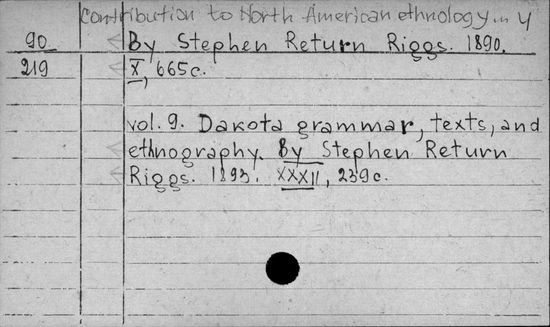 Contribution to North American ethnology in 4
90 By Stephen Return Riggs. 1890.
219 X, 665c.
vol. 9. Dakota grammar, texts, and
ethnography. By Stephen Return
Riggs. 1893. XXXII, 239c.